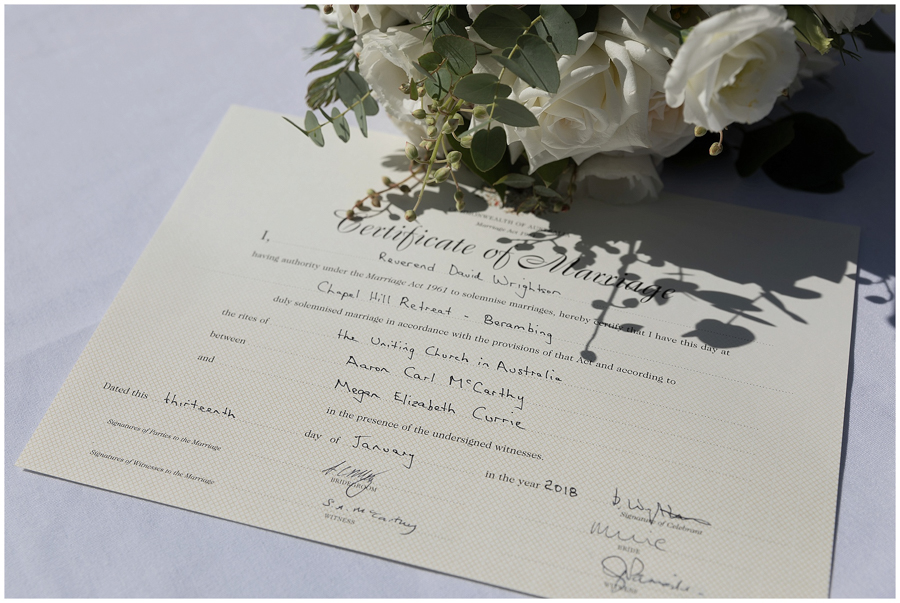 COMMONWEALTH OF AUSTRALIA
Marriage Act 1961
Certificate of Marriage
I, Reverend David Wrightson
having authority under the Marriage Act 1961 to solemnise marriages, hereby certify that I have this day at
Chapel Hill Retreat - Berambing
duly solemnised marriage in accordance with the provisions of that Act and according to
the rites of the Uniting Church in Australia
between Aaron Carl McCarthy
and Megan Elizabeth Currie
in the presence of the undersigned witnesses.
Dated this thirteenth day of January in the year 2018
Signature of Celebrant
Signatures of Parties to the Marriage
BRIDEGROOM
BRIDE
Signatures of Witnesses to the Marriage
S.R. McCarthy
WITNESS
WITNESS